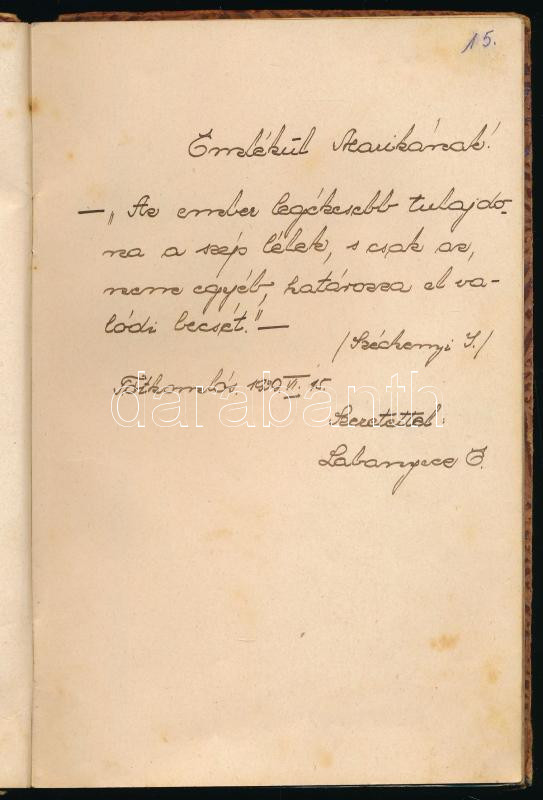 15.
Emlékül Marikának!
—„Az ember legékesebb tulajdo-
na a szép lélek, s csak az,
nem egyéb, határozza el va-
lódi becsét."—
/Széchenyi I./
Tótkomlós. 1939 VI. 15.
darabanth
Szeretettel: